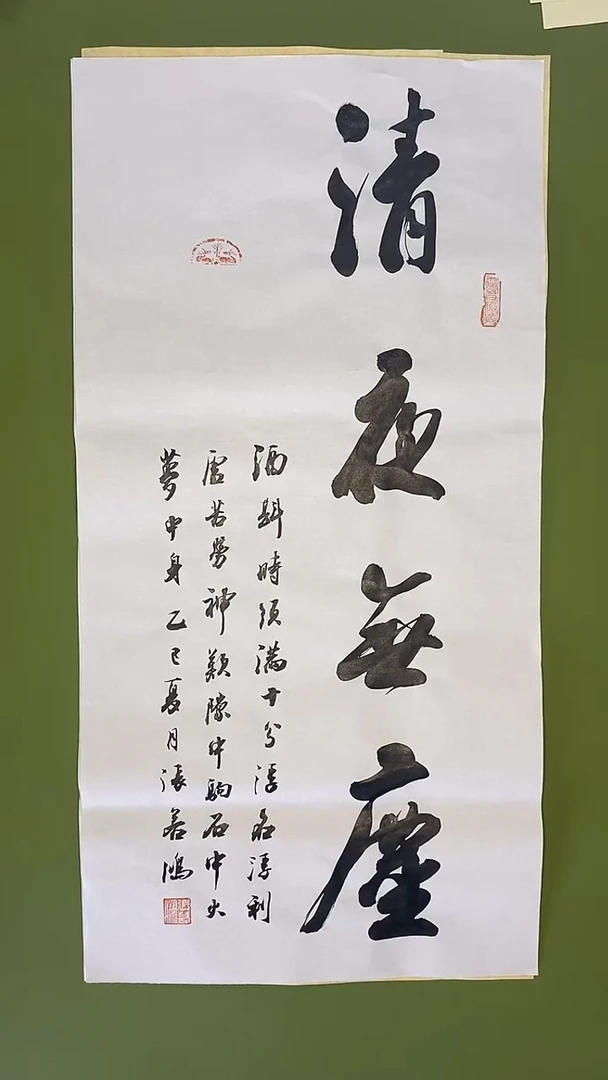 清夜無塵
酒斟時須滿十分浮名浮利
虛苦勞神歎隙中駒石中火
夢中身乙巳夏月張若鴻